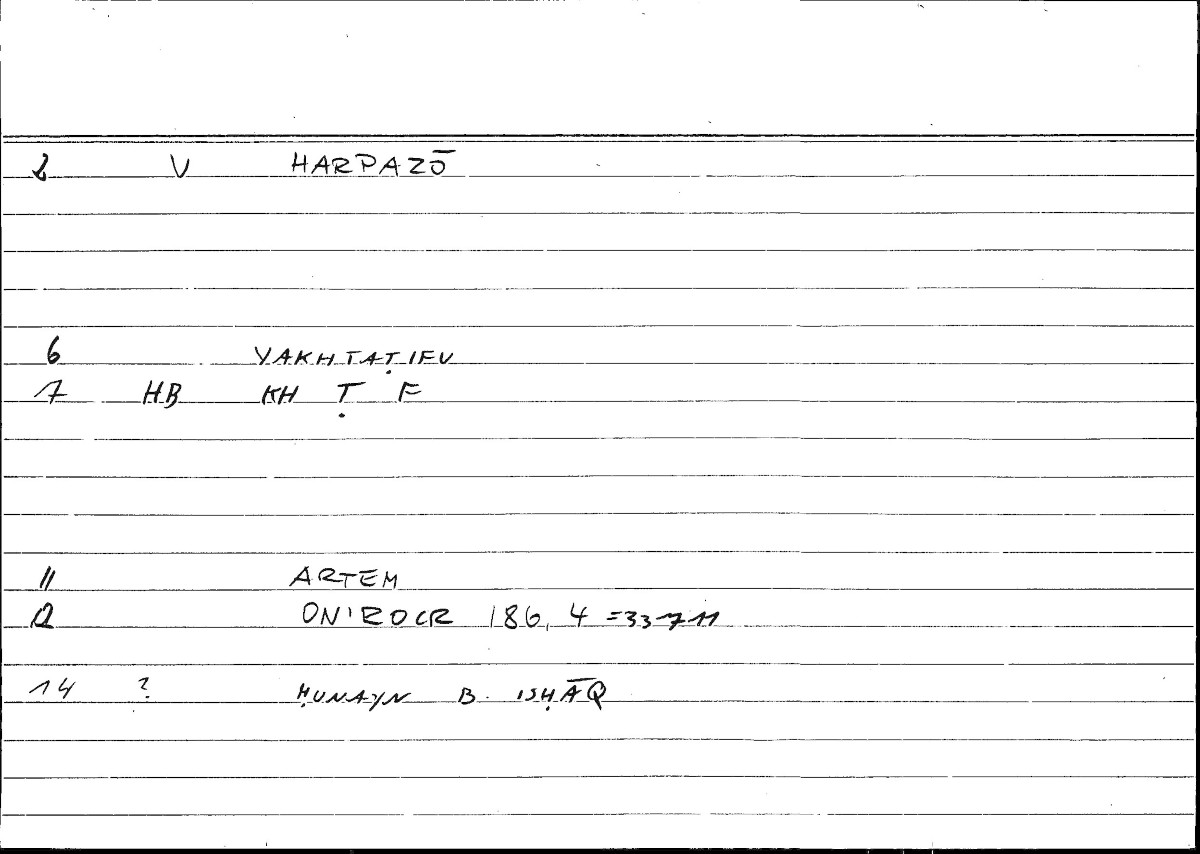 2 V HARPAZŌ
6 YAKHTAṬIFU
7 HB KH Ṭ F
11 ARTEM
12 ONIROCR 186, 4 = 337 11
14 ? ḤUNAYN B. ISḤĀQ